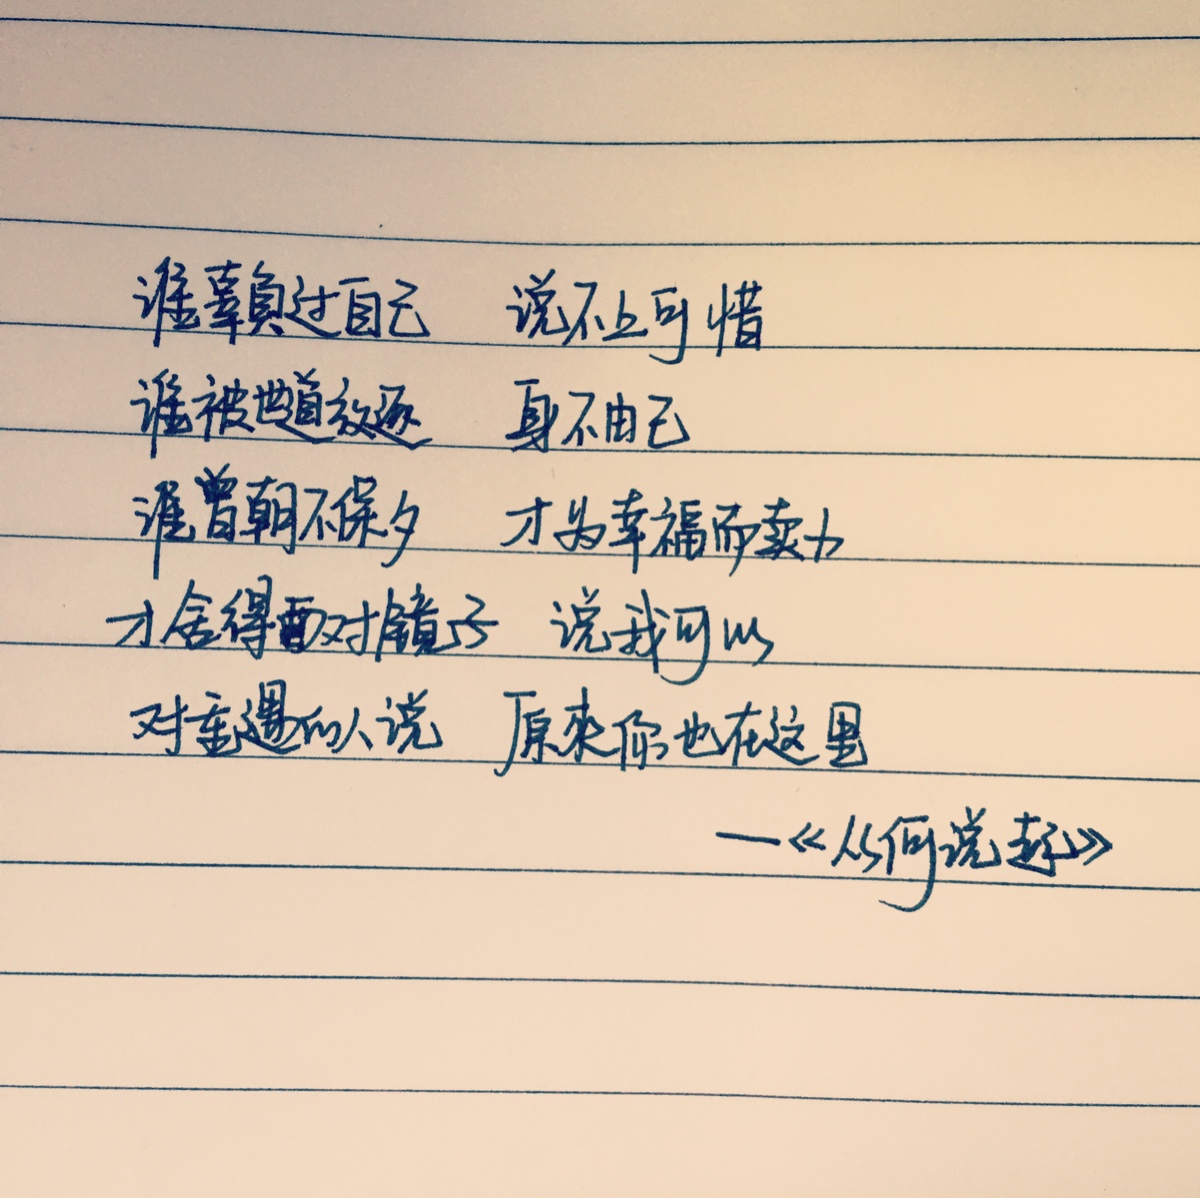 谁辜負过自己 说不上可惜
谁被世道放逐 身不由己
谁曾朝不保夕 才为幸福而卖力
才舍得面对镜子 说我可以
对重遇的人说 原來你也在这里
—《从何说起》